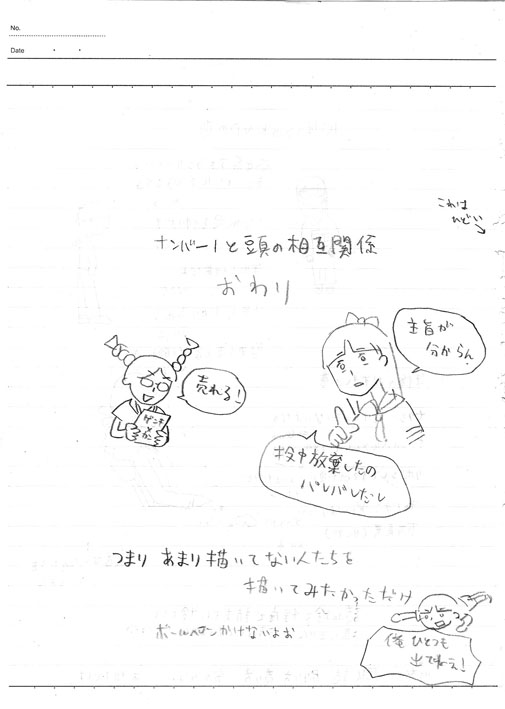 No.
Date
これは
ひどい
ナンバー1と頭の相互関係
おわり
主旨が
分からん
売れる!
ゲンキ
メカ
投中放棄したの
バレバレだし
つまり あまり描いてない人たちを
描いてみたかっただけ
ボールペンかけないよお
俺ひとつも
出てねえ!